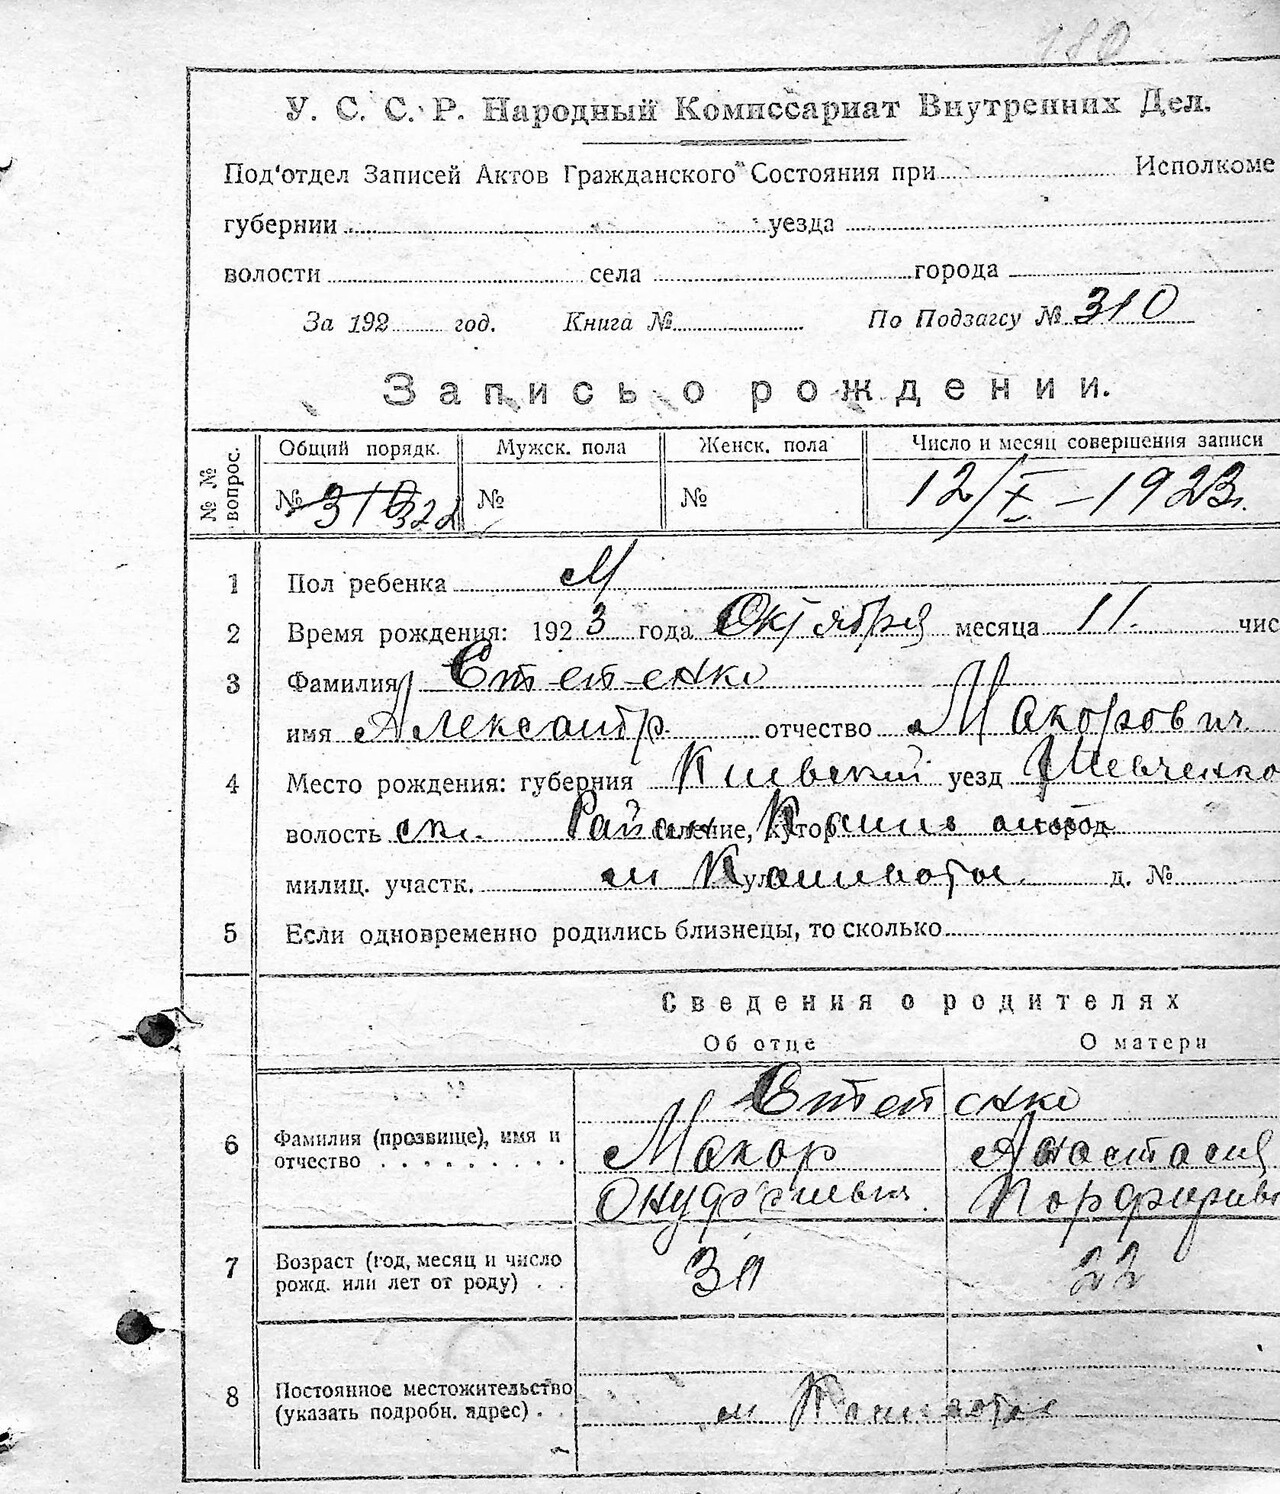 180
У. С. С. Р. Народный Комиссариат Внутренних Дел.
Под'отдел Записей Актов Гражданского Состояния при Исполкоме
губернии уезда
волости села города
За 192 год. Книга № По Подзагсу № 310
Запись о рождении.
№ № вопрос. Общий порядк. Мужск. пола Женск. пола Число и месяц совершения записи
№ 310 322 № № 12/X – 1923г.
1 Пол ребенка М
2 Время рождения: 1923 года Октября месяца 11. чис
3 Фамилия Степенко
имя Александр отчество Макорович
4 Место рождения: губерния Киевский уезд Шевченко
волость ск. Район селение, хутор город
милиц. участк. м Кошевотое ул. д. №
5 Если одновременно родились близнецы, то сколько
Сведения о родителях
Об отце О матери
Степенко
6 Фамилия (прозвище), имя и Макор Анастасия
отчество Онуфриевич Порфирьев
7 Возраст (год, месяц и число 30 22
рожд. или лет от роду)
8 Постоянное местожительство
(указать подробн. адрес) м Кошевотое